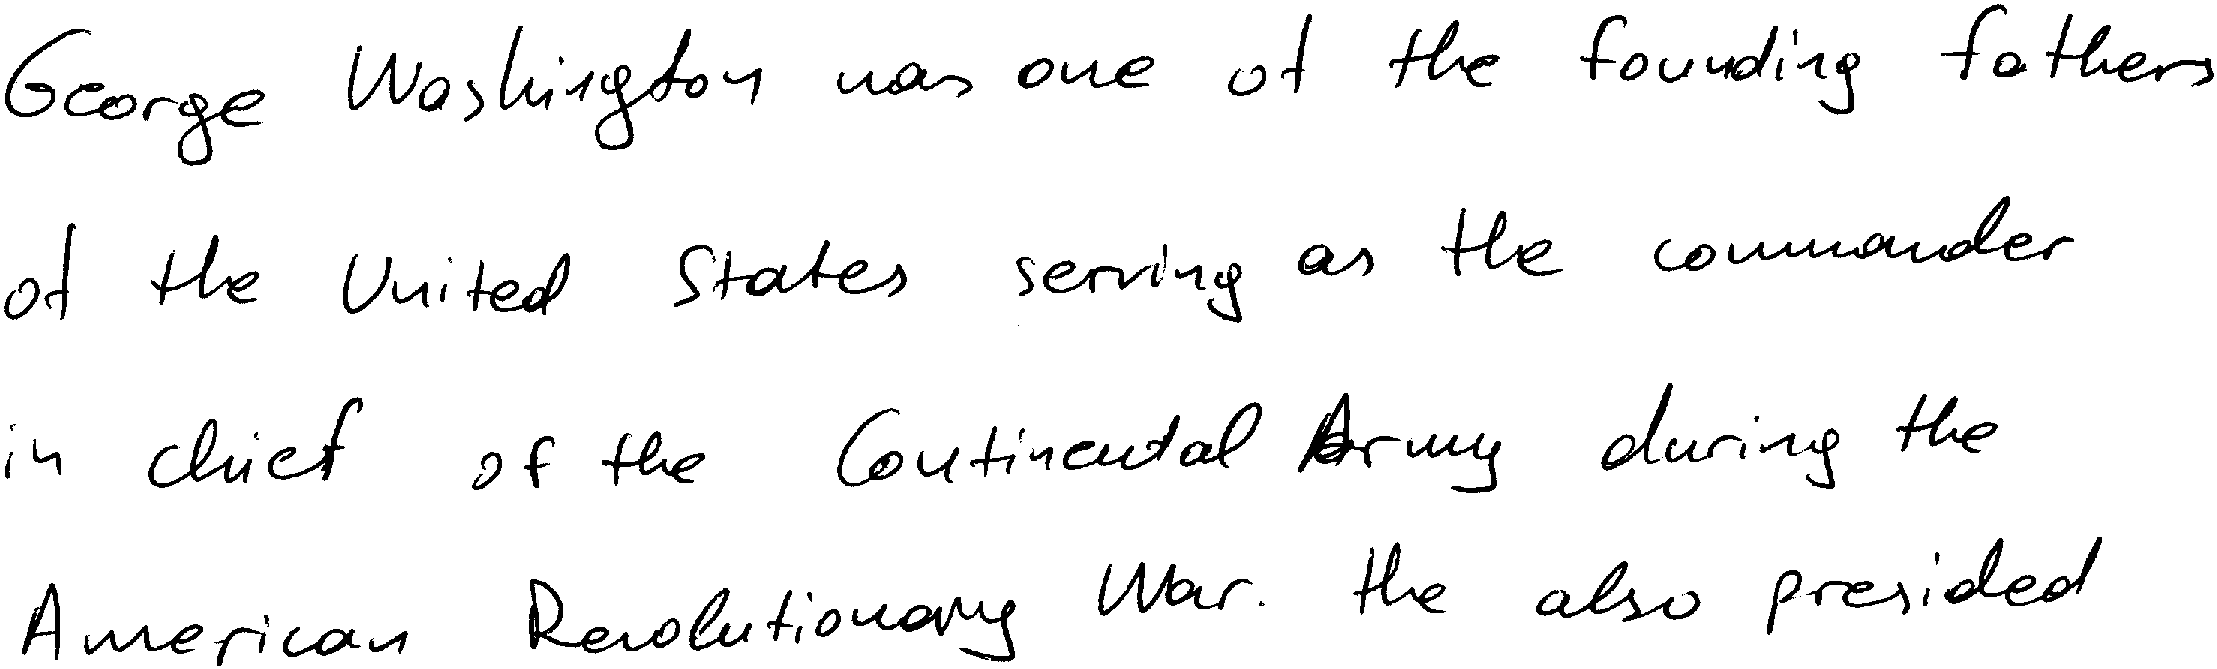 George Washington was one of the founding fathers
of the United States serving as the commander
in chief of the Continental Army during the
American Revolutionary War. the also presided